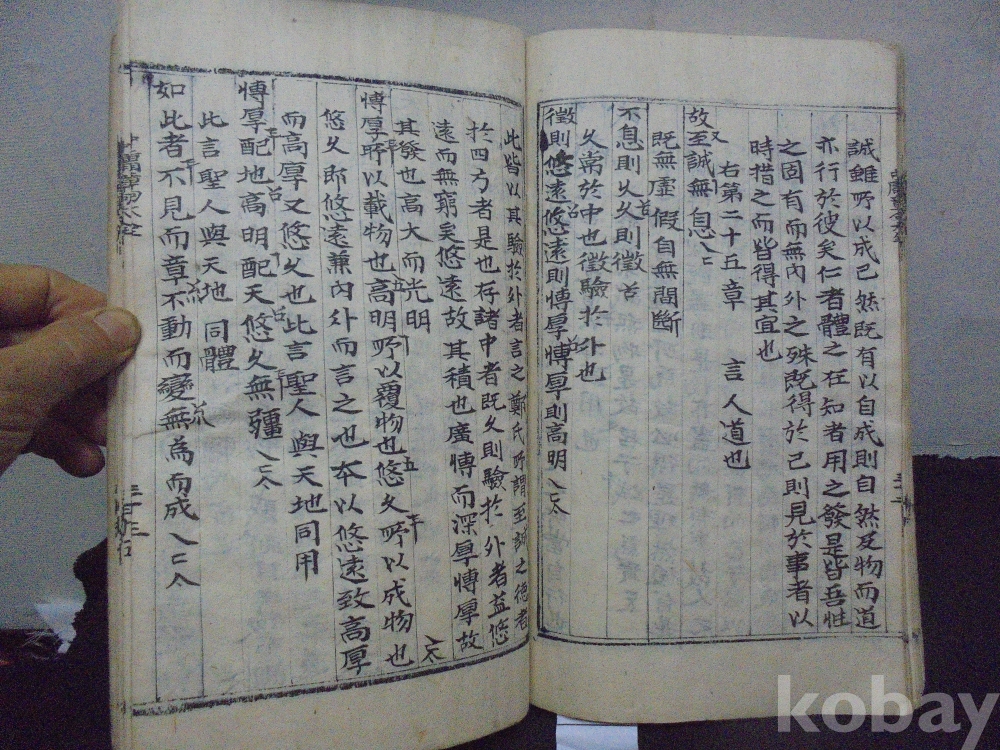 誠雖所以成己然既有以自成則自然及物而道
亦行於彼矣仁者體之存知者用之發是皆吾性
之固有而無內外之殊既得於己則見於事者以
時措之而皆得其宜也
右第二十五章 言人道也
故至誠無息
既無虛假自無間斷
不息則久久則徵
久常於中也徵驗於外也
徵則悠遠悠遠則博厚博厚則高明
此皆以其驗於外者言之鄭氏所謂至誠之德者
於四方者是也存諸中者既久則驗於外者益悠
遠而無窮矣悠遠故其積也廣博而深厚博厚故
其發也高大而光明
博厚所以載物也高明所以覆物也悠久所以成物也
悠久即悠遠兼內外而言之也本以悠遠致高厚
而高厚又悠久也此言聖人與天地同用
博厚配地高明配天悠久無疆
此言聖人與天地同體
如此者不見而章不動而變無為而成
kobay